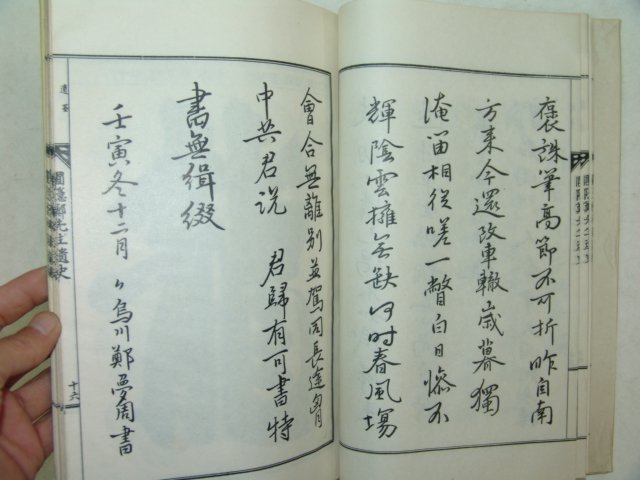 褒誅筆高節不可折昨自南
方来今還改車轍歲暮獨
淹留相從嗟一瞥白日慘不
輝陰雲擁無缺何时春風場
會合無離別並駕同長途肯
中共君說 君歸有可書特
書無緝綴
壬寅冬十二月 烏川鄭夢周書
圃隱鄭先生遺史
十六